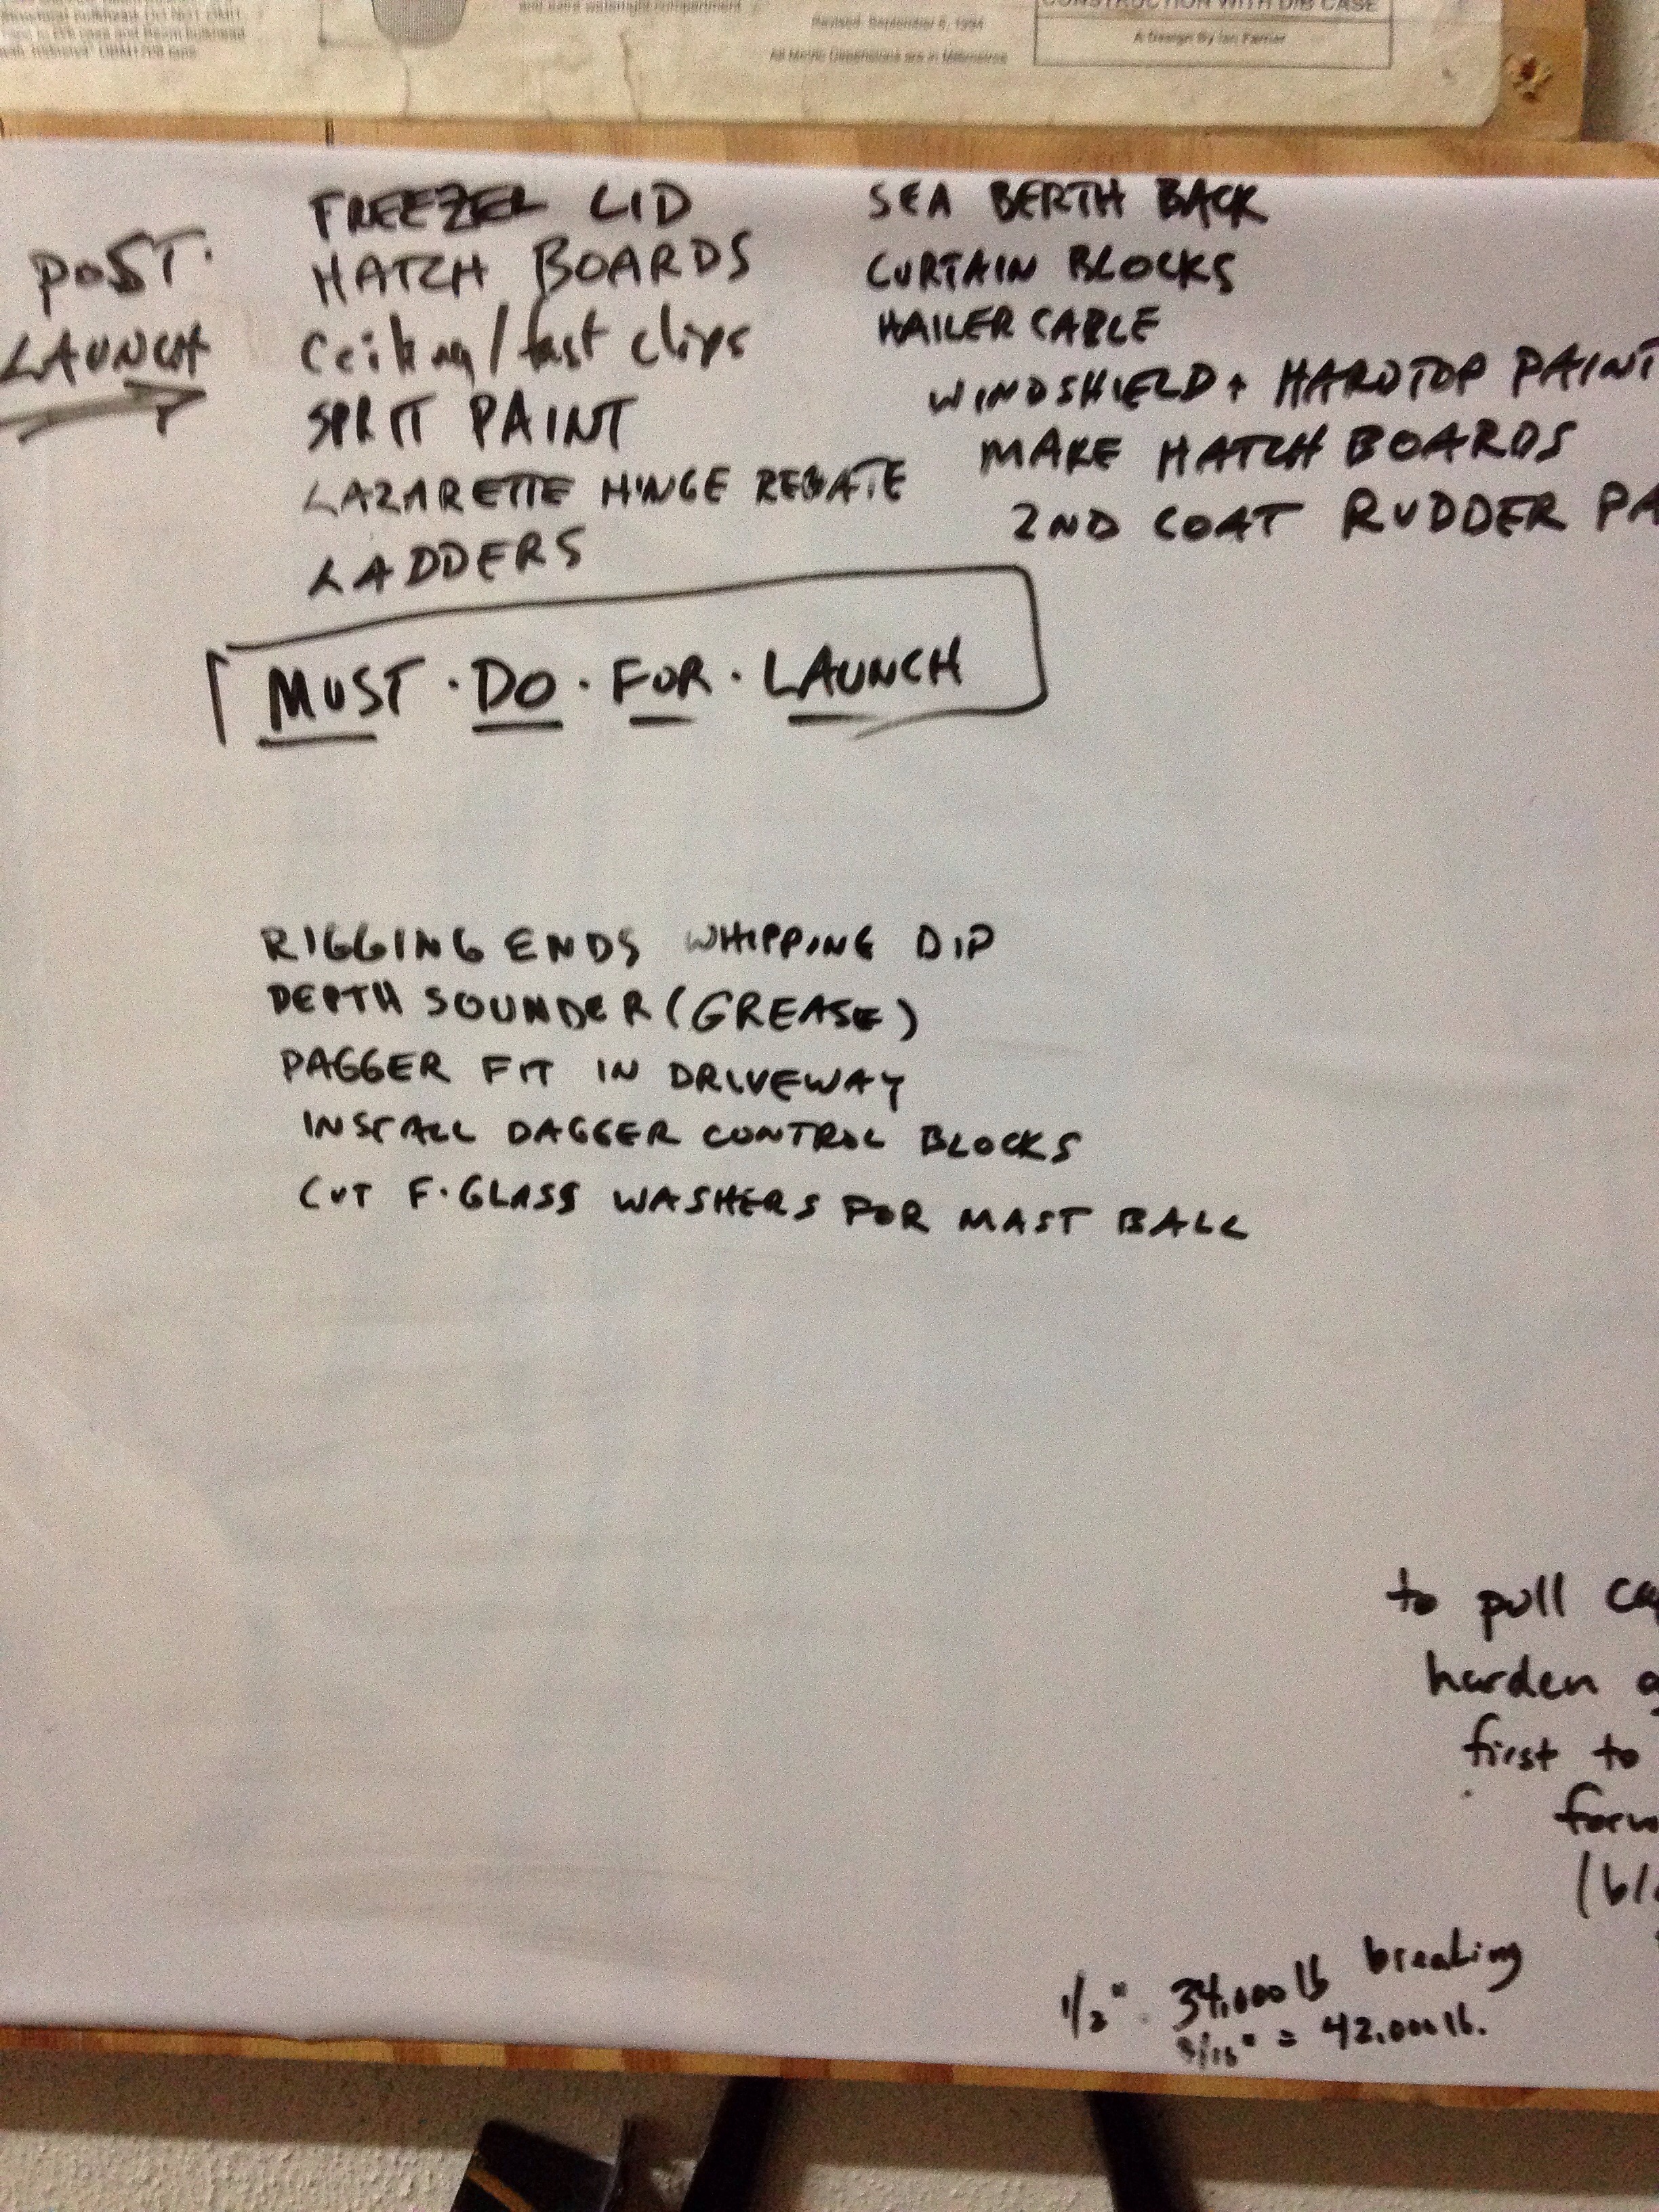 and extra watertight compartment
Revised September 6, 1994
All Metric Dimensions are in Millimetres
CONSTRUCTION WITH DIB CASE
A Design By Ian Farrier
POST.
LAUNCH
FREEZER LID
HATCH BOARDS
Ceiling / fast clips
SPRIT PAINT
LAZARETTE HINGE REBATE
LADDERS
SEA BERTH BACK
CURTAIN BLOCKS
HAILER CABLE
WINDSHIELD + HARDTOP PAINT
MAKE HATCH BOARDS
2ND COAT RUDDER PA
MUST · DO · FOR · LAUNCH
RIGGING ENDS WHIPPING DIP
DEPTH SOUNDER (GREASE)
DAGGER FIT IN DRIVEWAY
INSTALL DAGGER CONTROL BLOCKS
CUT F·GLASS WASHERS FOR MAST BALL
to pull
harden
first to
(bl
1/2" 34,000 lb breaking
9/16" = 42,000 lb.